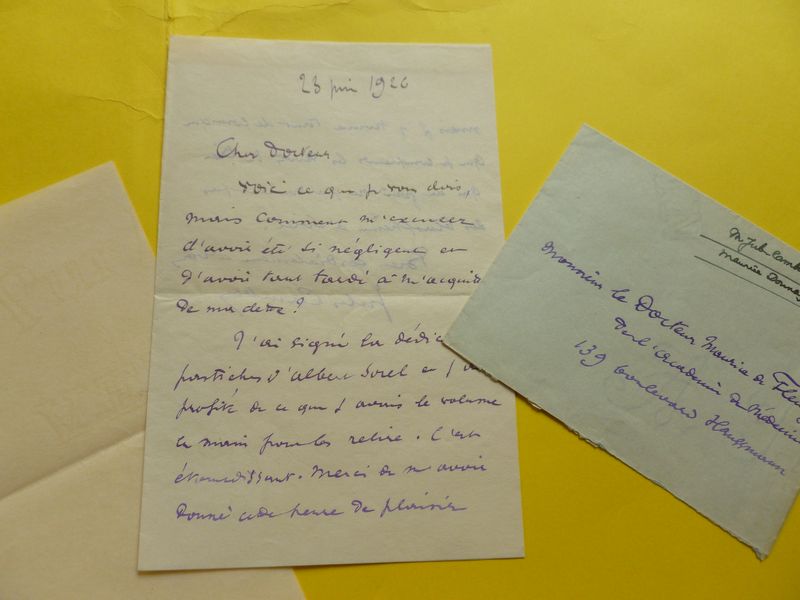 23 juin 1926
Cher Docteur
Voici ce que je vous dois,
mais comment m'excuser
d'avoir été si négligent et
d'avoir tant tardé à m'acquit
de ma dette?
J'ai signé la dédic
pastiches d'Albert Sorel et j'ai
profité de ce que j'avais le volume
en main pour les relire. C'est
étourdissant. Merci de m'avoir
donné cette heure de plaisir
M Jules Camb
Maurice Donnay
Monsieur le Docteur Maurice de Fleu
de l'Académie de Médecine
139 boulevard Haussmann